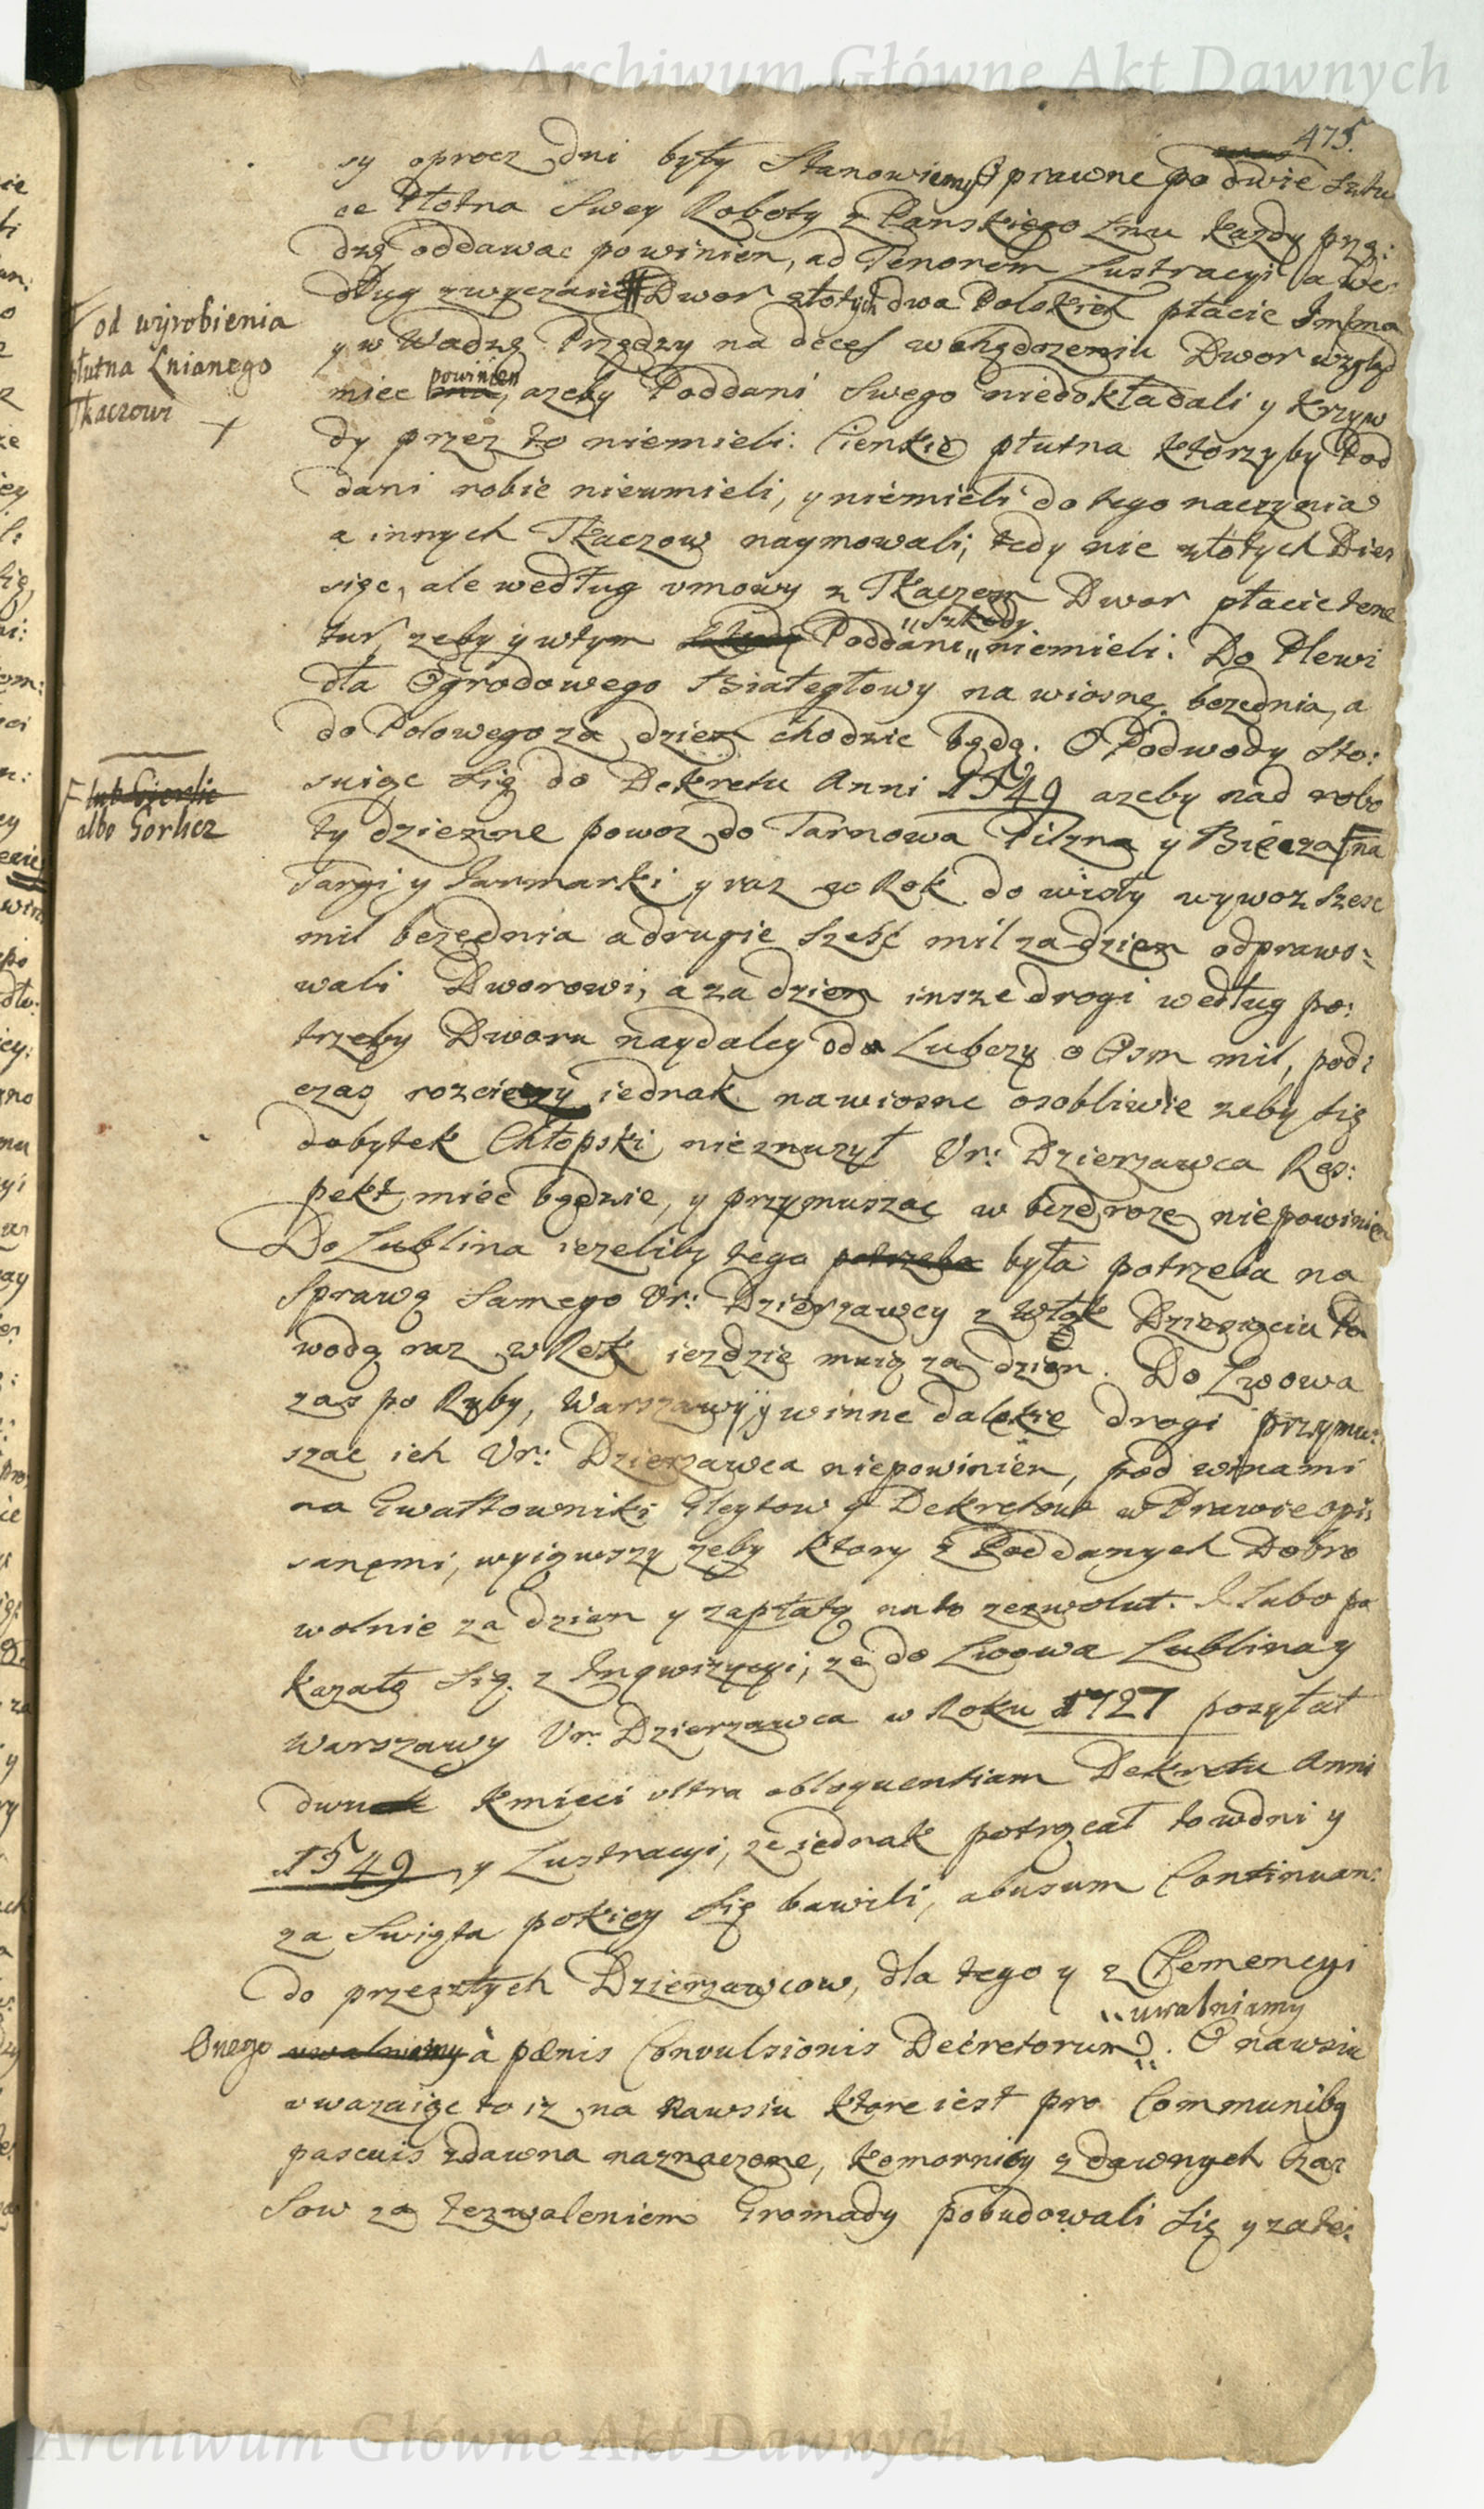 Archiwum Główne Akt Dawnych
475.
sy oprocz dni były Stanowiemy O prawne po dwie sztu
ce Płotna Swey Roboty z Panskiego Lnu kazdy przę:
dzę oddawac powinien, ad Tenorem Lustracyi a we:
dług zwyczaiu Dwor złotych dwa Polskich płacic Imſma
od wyrobienia
płutna Lnianego
Tkaczowi
y w Wadzę Przędzy na deces w chędozeniu Dwor wzgląd
miec powinien, azeby Poddani Swego niedokładali y krzyw
dy przez to niemieli: Cienkie płutna ktorzyby Pod
dani robic nieumieli, y niemieli do tego naczynia
a innych Tkaczow naymowali, tedy nie złotych Dzie
sięc, ale według vmowy z Tkaczem Dwor płacic tene
tur, zeby y wtym Poddani „szkody „ niemieli: Do Plewi
dła Ogrodowego Białegłowy na wiosnę bezednia, a
do Polowego za dzien chodzic będą. O Podwody Sto:
suiąc się do Dekretu Anni 1549 azeby nad robo
lub Gorlic
albo Gorlicz
ty dzienne powoz do Tarnowa Pilzna y Biecza na
Targi y Jarmarki y raz w Rok do wisły wywoz szesc
mil bezednia a drugie sześć mil za dzien odprawo:
wali Dworowi, a za dzien insze drogi według po:
trzeby Dworu naydaley od Lubczy o Osm mil, pod:
czas rozcieczy iednak na wiosne osobliwie zeby się
dobytek Chłopski nieznuzył Vr: Dzierzawca Res:
pekt miec będzie, y przymuszac w bezdroze niepowinien
Do Lublina iezeliby tego potrzeba była potrzeba na
Sprawę Samego Vr: Dzierzawcy z włok Dziesięciu Po
wodę raz w Rok iezdzic maią za dzien. Do Lwowa
zas po Ryby, Warszawy y w inne dalekie drogi przymu:
szac ich Vr: Dzierzawca niepowinien, pod winami
na Gwałtowniki Gleytow y Dekretow w Prawie opi:
sanemi, wyiąwszy zeby ktory z Poddanych Dobro
wolnie za dzien y zapłatę na to zezwolił. I lubo po
kazało się z Inqwizycyi, ze do Lwowa Lublina y
Warszawy Vr: Dzierzawca w Roku 1727 posyłał
dwu kmieci vltra obloquentiam Dekretu Anni
1549 y Lustracyi, ze iednak potrącał to w dni y
za Swięta pokiey się bawili, abusum Continuan:
do przeszłych Dzierzawcow, dla tego y z Clemencyi
Onego uwalniamy à pœnis Convulsionis Decretorum „uwalniamy. O nawsiu
vwazaiąc to iz na nawsiu ktore iest pro Communibꝫ
pascuis zdawna naznaczone, komornicy z dawnych Cza
Sow za zezwaleniem Gromady pobudowali się y zate:
Archiwum Główne Akt Dawnych